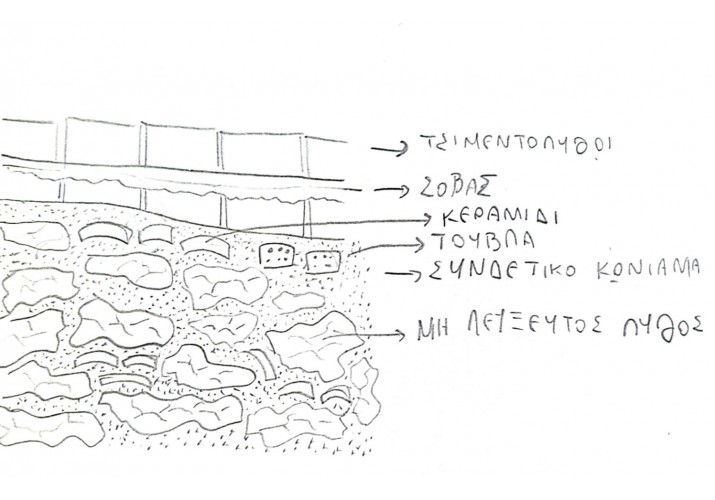 ΤΣΙΜΕΝΤΟΛΥΘΟΙ
ΣΟΒΑΣ
ΚΕΡΑΜΙΔΙ
ΤΟΥΒΛΑ
ΣΥΝΔΕΤΙΚΟ ΚΩΝΙΑΜΑ
ΜΗ ΛΕΥΞΕΥΤΟΣ ΛΥΘΟΣ